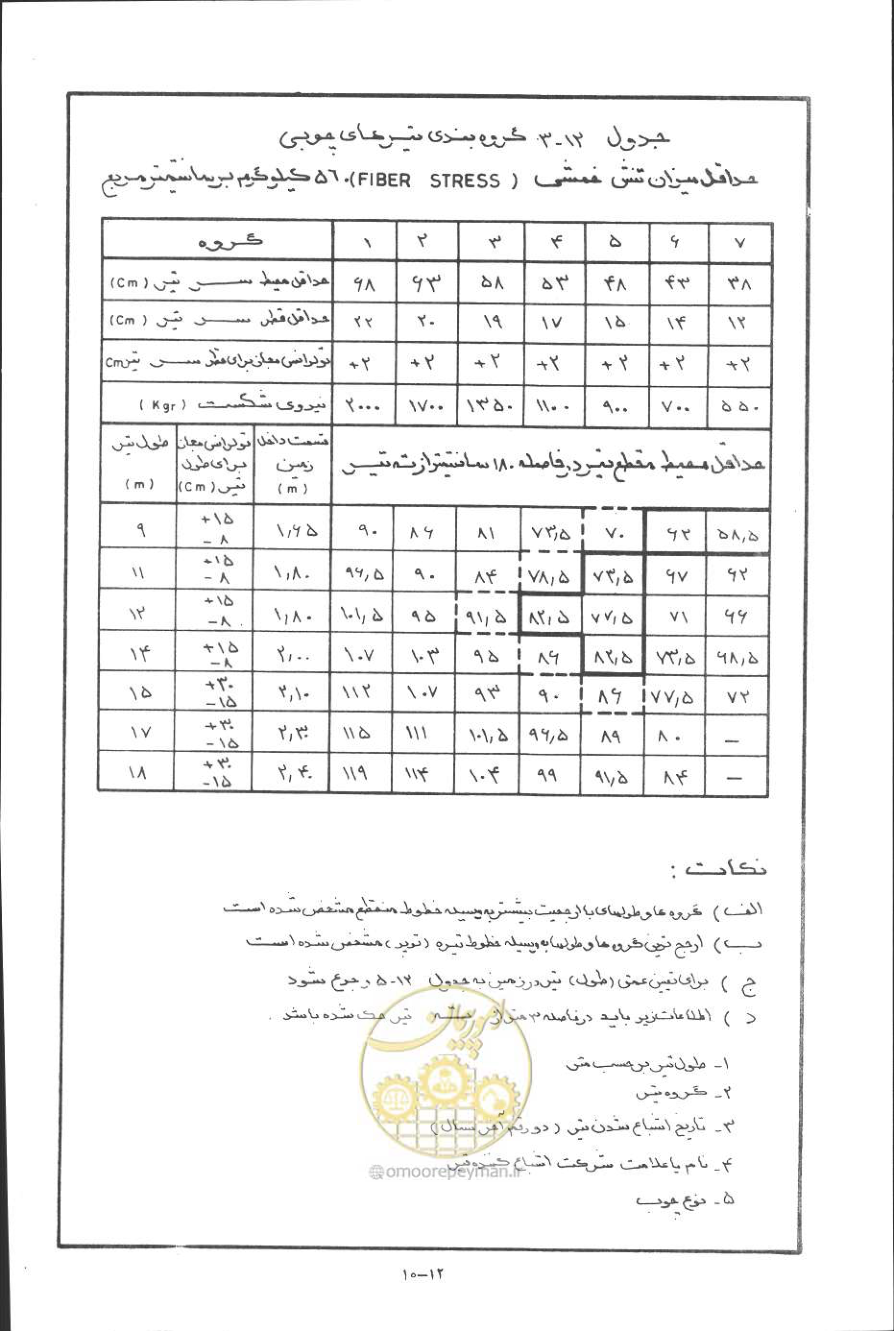 جدول ۱۲-۳. گروه بندی تیرهای چوبی
حداقل میزان تنش خمشی (FIBER STRESS) ۵۶۰ کیلوگرم بر سانتیمتر مربع
گروه ۱ ۲ ۳ ۴ ۵ ۶ ۷
حداقل محیط سر تیر (Cm) ۶۸ ۶۳ ۵۸ ۵۳ ۴۸ ۴۳ ۳۸
حداقل قطر سر تیر (Cm) ۲۲ ۲۰ ۱۹ ۱۷ ۱۵ ۱۴ ۱۲
تولرانس مجاز برای قطر سر تیر Cm +۲ +۲ +۲ +۲ +۲ +۲ +۲
نیروی شکست (Kgr) ۲۰۰۰ ۱۷۰۰ ۱۳۵۰ ۱۱۰۰ ۹۰۰ ۷۰۰ ۵۵۰
طول تیر (m) تولرانس مجاز برای طول تیر (Cm) قسمت داخل زمین (m) حداقل محیط مقطع تیر در فاصله ۱۸۰ سانتیمتر از ته تیر
۹ +۱۵ -۸ ۱,۶۵ ۹۰ ۸۶ ۸۱ ۷۳,۵ ۷۰ ۶۲ ۵۸,۵
۱۱ +۱۵ -۸ ۱,۸۰ ۹۶,۵ ۹۰ ۸۴ ۷۸,۵ ۷۳,۵ ۶۷ ۶۲
۱۲ +۱۵ -۸ ۱,۸۰ ۱۰۱,۵ ۹۵ ۹۱,۵ ۸۲,۵ ۷۷,۵ ۷۱ ۶۶
۱۴ +۱۵ -۸ ۲,۰۰ ۱۰۷ ۱۰۳ ۹۵ ۸۶ ۸۲,۵ ۷۳,۵ ۶۸,۵
۱۵ +۳۰ -۱۵ ۲,۱۰ ۱۱۲ ۱۰۷ ۹۳ ۹۰ ۸۶ ۷۷,۵ ۷۲
۱۷ +۳۰ -۱۵ ۲,۳۰ ۱۱۵ ۱۱۱ ۱۰۱,۵ ۹۶,۵ ۸۹ ۸۰ —
۱۸ +۳۰ -۱۵ ۲,۴۰ ۱۱۹ ۱۱۴ ۱۰۴ ۹۹ ۹۱,۵ ۸۴ —
نکات :
الف) گروه ها و طولهای با ارجعیت بیشتر به وسیله خطوط منقطع مشخص شده است
ب) ارجح ترین گروه ها و طولها به وسیله خطوط تیره (توپر) مشخص شده است
ج) برای تعین عمق (طول) تیر در زمین به جدول ۱۲-۵ رجوع شود
د) اطلاعات زیر باید در فاصله ۳ متر از ته تیر حک شده باشد .
۱- طول تیر بر حسب متر
۲- گروه تیر
۳- تاریخ اشباع شدن تیر (دو رقم آخر سال)
۴- نام یا علامت شرکت اشباع کننده تیر
۵- نوع چوب
امور پیمان
omoorepeyman.ir
۱۰-۱۲